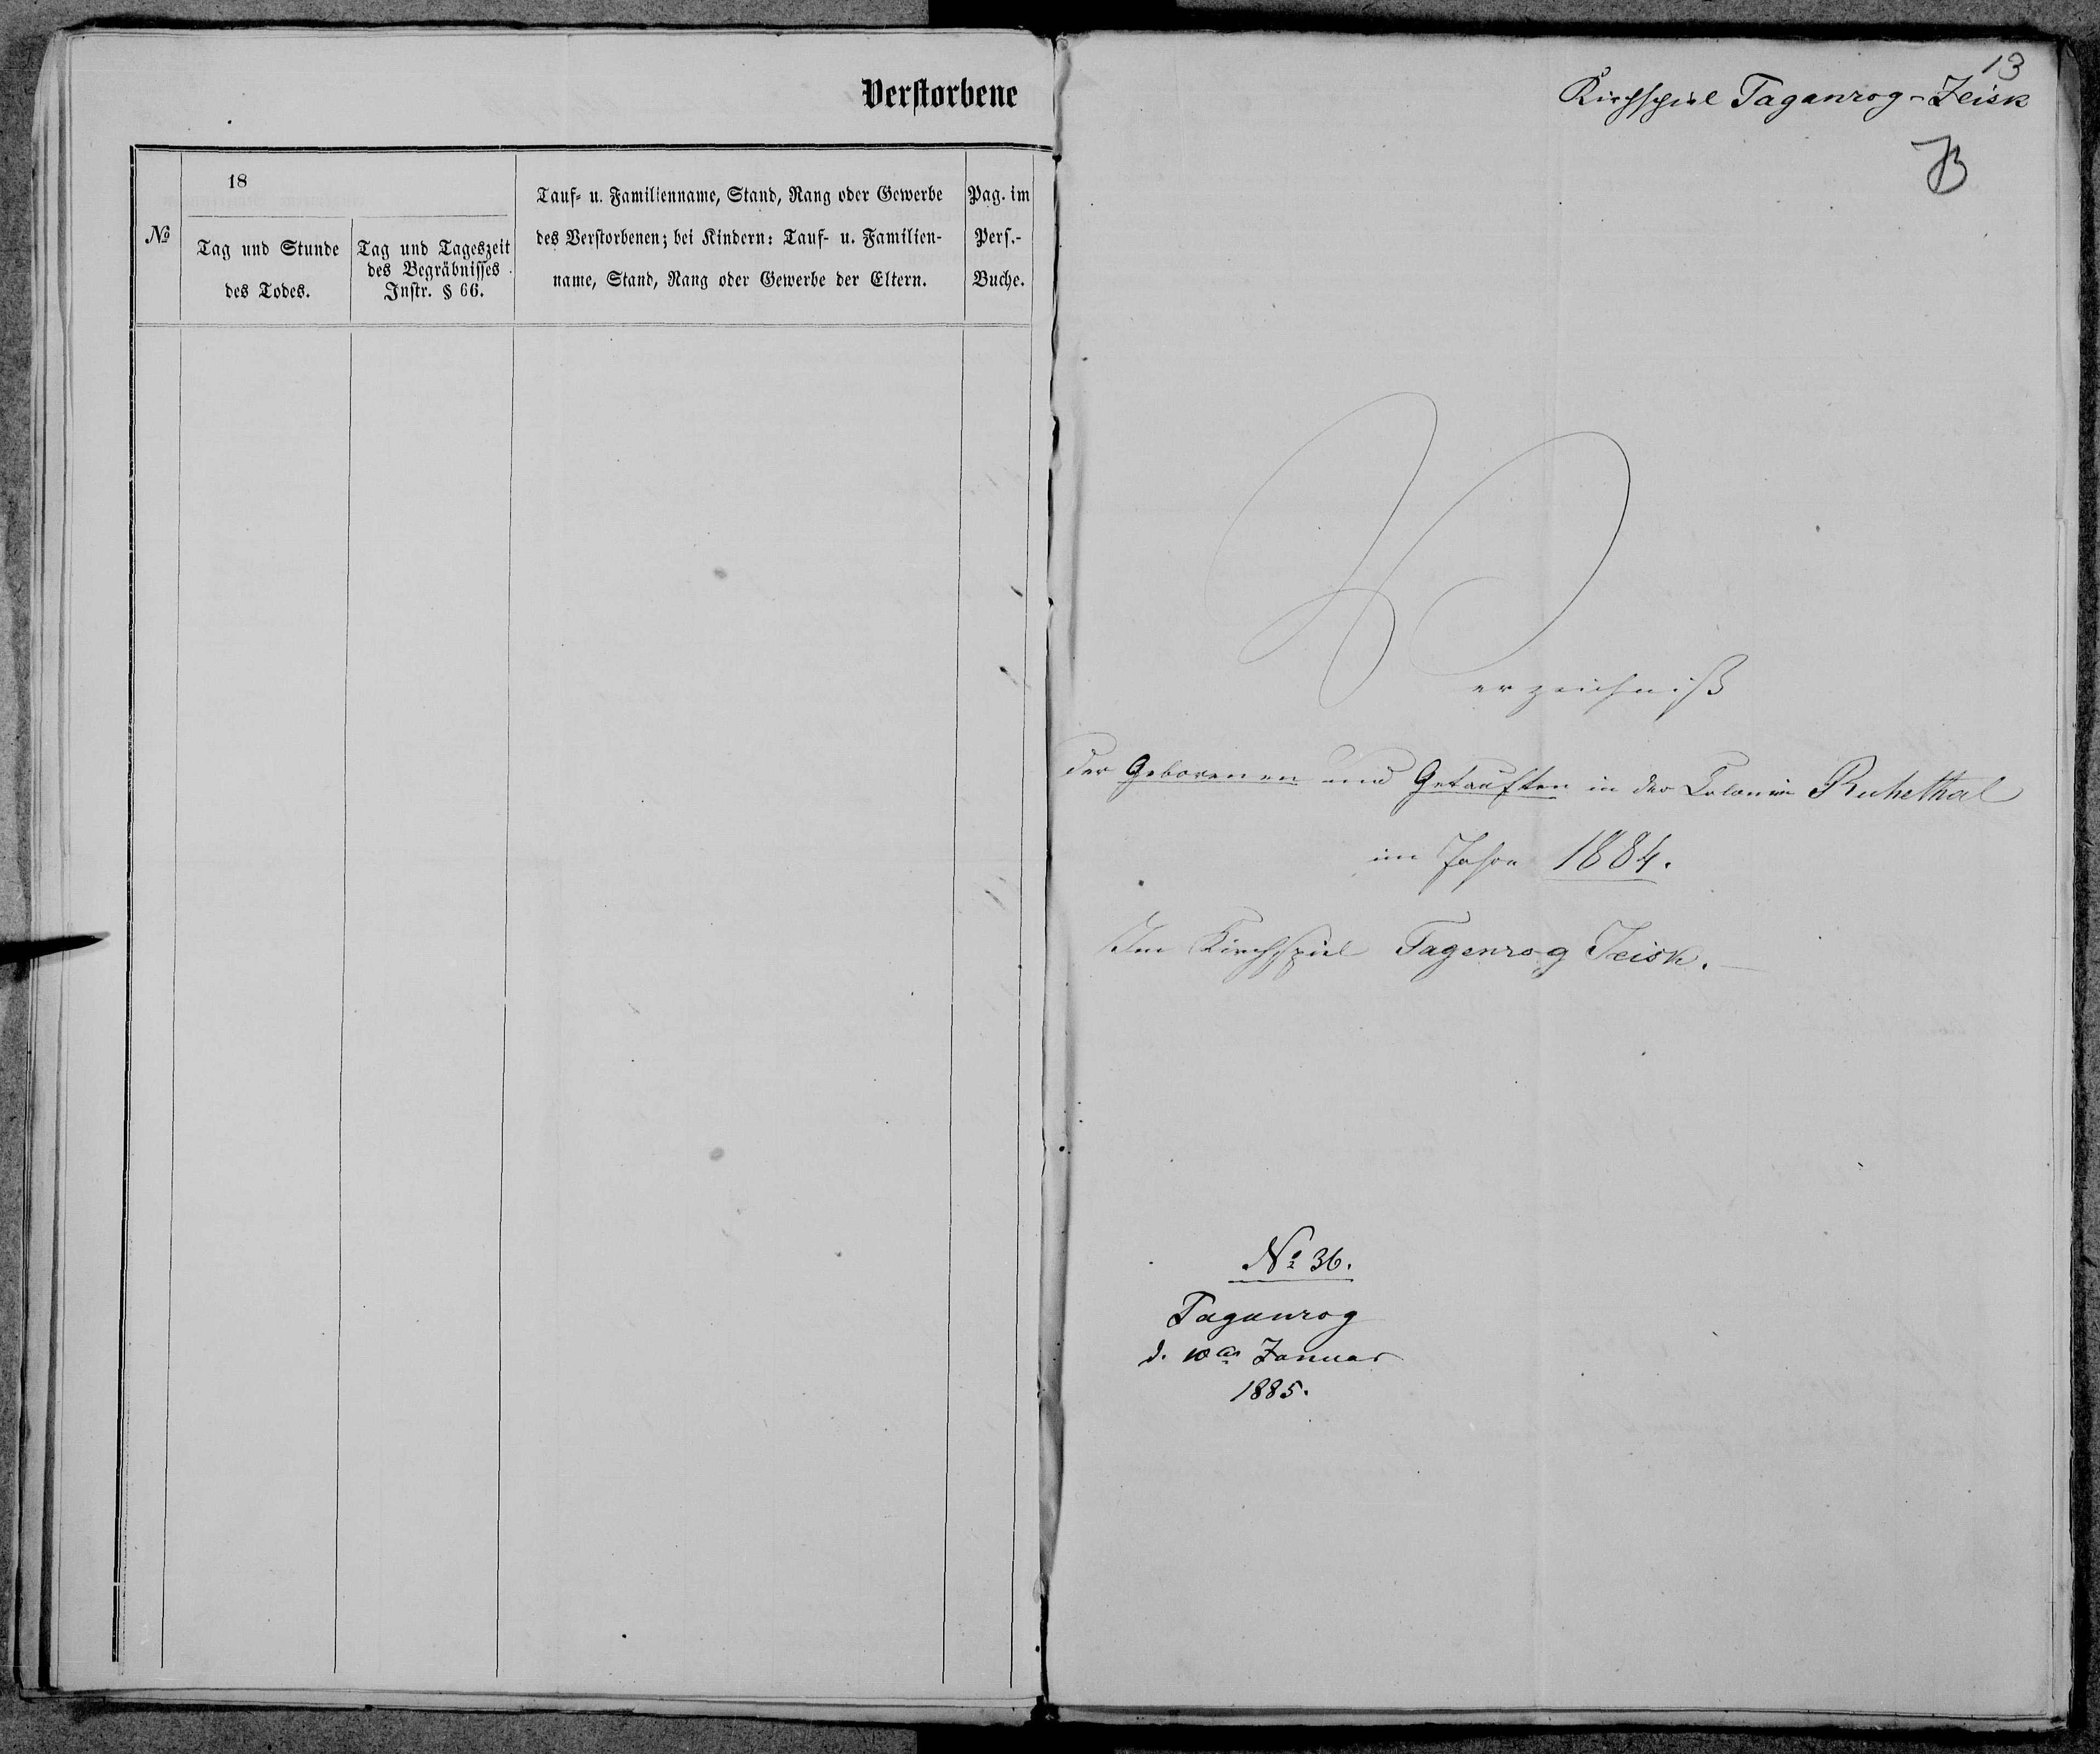 Verstorbene
№
18
Tag und Stunde
des Todes.
Tag und Tageszeit
des Begräbnisses
Instr. § 66.
Tauf- u. Familienname, Stand, Rang oder Gewerbe
des Verstorbenen; bei Kindern: Tauf- u. Familien-
name, Stand, Rang oder Gewerbe der Eltern.
Pag. im
Pers.-
Buche.
13
Kirchspiel Taganrog-Jeisk
Verzeichniß
der Geborenen und Getauften in der Colonie Ruhethal
im Jahre 1884.
Im Kirchspiel Tagenrog Jeisk.
№ 36.
Taganrog
d. 10 Januar
1885.